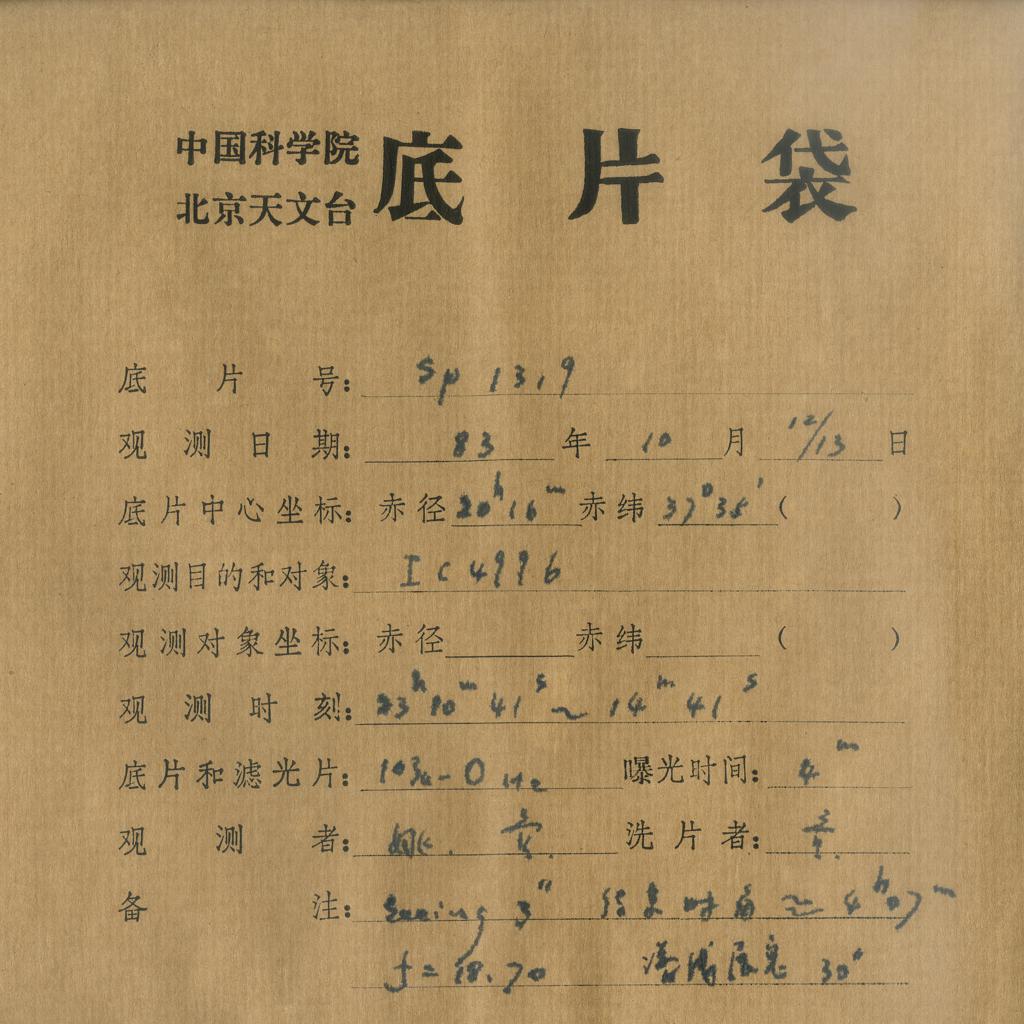 中国科学院
北京天文台
底片袋
底片号: Sp 1319
观测日期: 83 年 10 月 12/13 日
底片中心坐标: 赤径 20h16m 赤纬 37°35' ( )
观测目的和对象: IC4996
观测对象坐标: 赤径 赤纬 ( )
观测时刻: 23h10m41s ~ 14m41s
底片和滤光片: 103a-O 曝光时间: 4m
观测者: 姚. 黄. 洗片者: 黄.
备注: Seeing 3" 结束时角 ≈ 4h07m
f = 18.70 30"